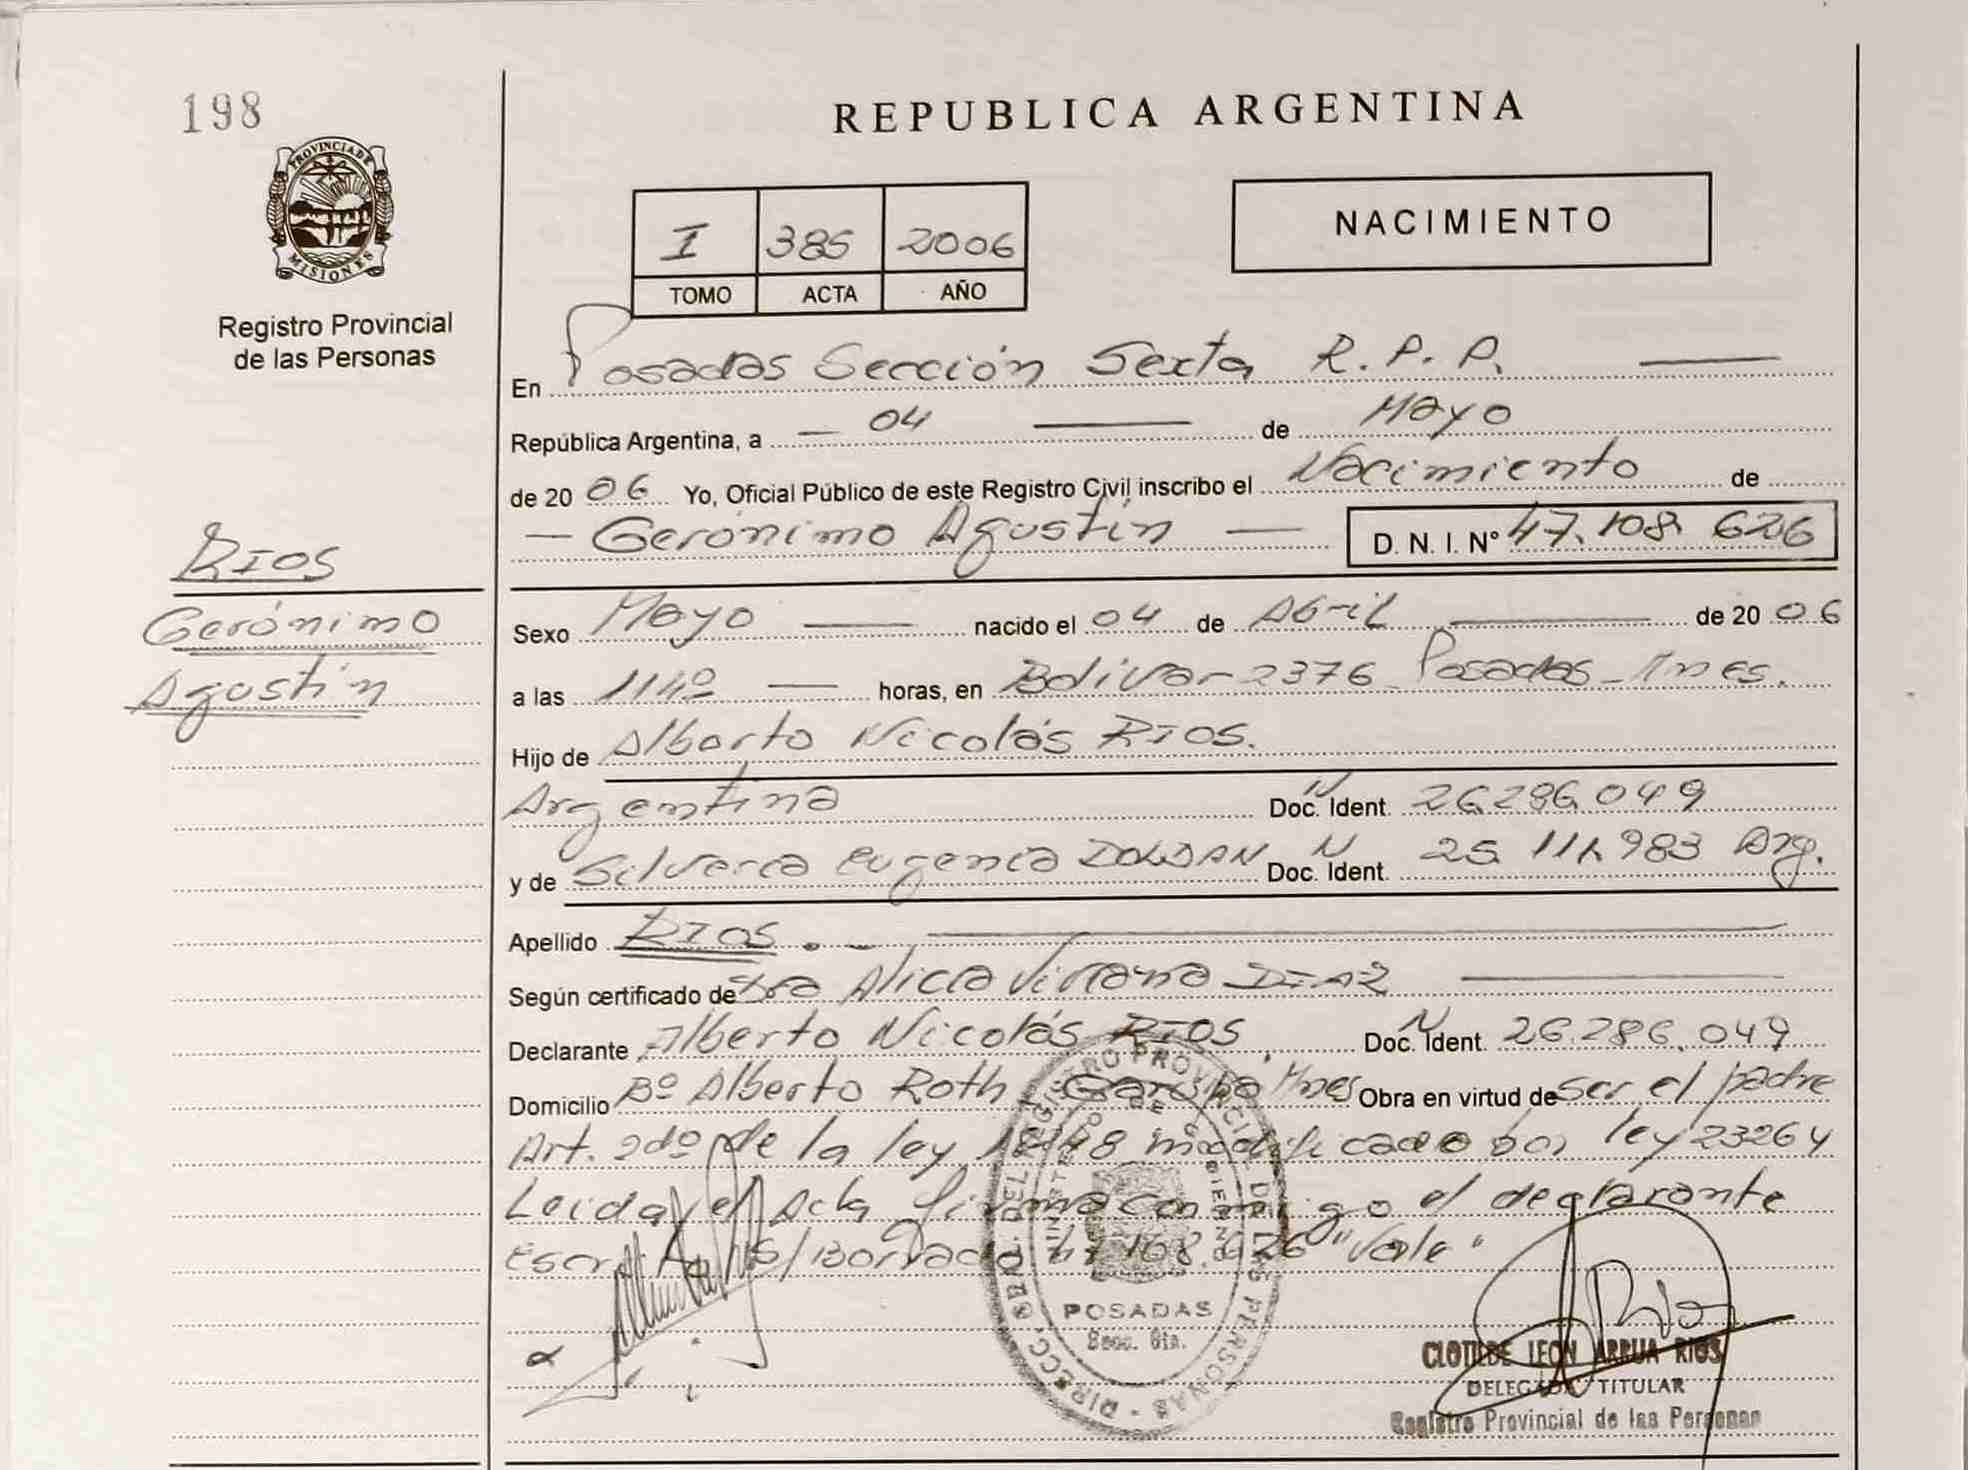 198
PROVINCIA DE
MISIONES
Registro Provincial
de las Personas
REPUBLICA ARGENTINA
I 385 2006
TOMO ACTA AÑO
NACIMIENTO
En Posadas Sección Sexta R. P. P.
República Argentina, a 04 de Mayo
de 20 06 Yo, Oficial Público de este Registro Civil inscribo el Nacimiento de
Gerónimo Agustín D. N. I. Nº 47.108.626
RIOS
Gerónimo
Agustín
Sexo Mayo nacido el 04 de Abril de 20 06
a las horas, en Bolivar 2376 Posadas - Mnes.
Hijo de Alberto Nicolás RIOS.
Argentina Doc. Ident. N 26.286.049
y de Silveria Eugenia DOLDAN Doc. Ident. N 25.111.983 Arg.
Apellido RIOS.
Según certificado de Dra Alicia Viviana DIAZ
Declarante Alberto Nicolás RIOS, Doc. Ident. N 26.286.049
Domicilio Bº Alberto Roth Garupá Mnes Obra en virtud de ser el padre
Art. 2dº de la ley modificado por ley 23264
Leida el Acta firma conmigo el declarante
S/Borrado 47.108.626 "Vale"
DIRECC. GRAL. DEL REGISTRO PROVINCIAL DE LAS PERSONAS
MINISTERIO DE GOBIERNO
POSADAS
Secc. 6ta.
CLOTILDE LEON ARRUA RIOS
DELEGADA TITULAR
Registro Provincial de las Personas